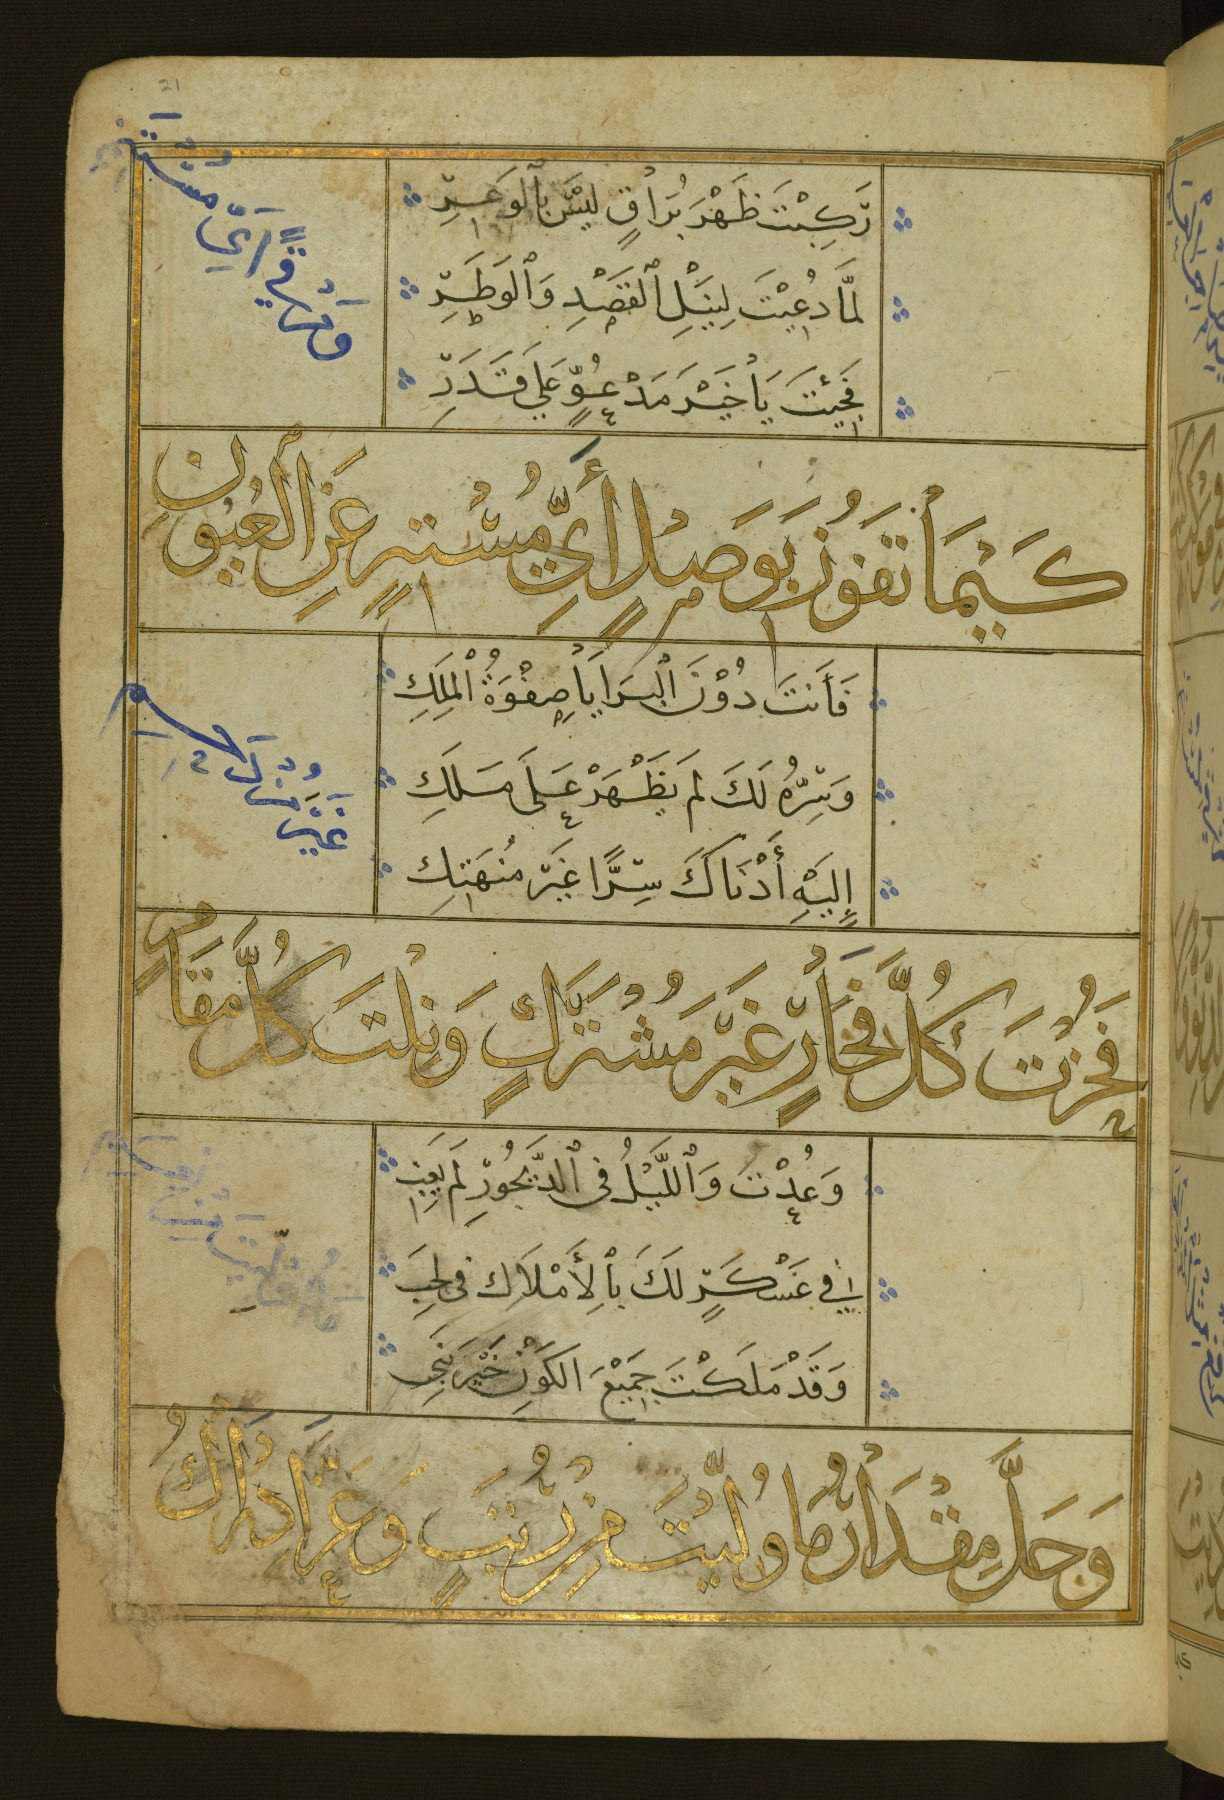 21
رَكِبْتَ ظَهْرَ بُرَاقٍ لَيْسَ بِالْوَعِرِ
لَمَّا دُعِيْتَ لِنَيْلِ الْقَصْدِ وَالْوَطَرِ
فَجِئْتَ يَا خَيْرَ مَدْعُوٍّ عَلَي قَدَرِ
كَيْمَا تَفُوْزَ بِوَصْلٍ أَيِّ مُسْتَتِرٍ عَنِ الْعُيُوْنِ
وَسِرٍّ أَيِّ مُكْتَتَمِ
فَأَنْتَ دُوْنَ الْبَرَايَا صِفْوَةُ الْمَلِكِ
وَسِرُّهُ لَكَ لَمْ يَظْهَرْ عَلَى مَلَكِ
إِلَيْهِ أَدْنَاكَ سِرًّا غَيْرَ مُنْهَتِكِ
فَحُزْتَ كُلَّ فَخَارٍ غَيْرَ مُشْتَرَكٍ وَنِلْتَ كُلَّ مَقَامٍ
غَيْرَ مُزْدَحَمِ
وَعُدْتَ وَاللَّيْلُ فِي الدَّيْجُوْرِ لَمْ يَغِبِ
فِي عَسْكَرٍ لَكَ بِالْأَمْلَاكِ فِي لَجَبِ
وَقَدْ مَلَكْتَ جَمِيْعَ الْكَوْنِ خَيْرَ نَبِي
وَجَلَّ مِقْدَارُ مَا وُلِّيْتَ مِنْ رُتَبٍ وَعَزَّ إِدْرَاكُ